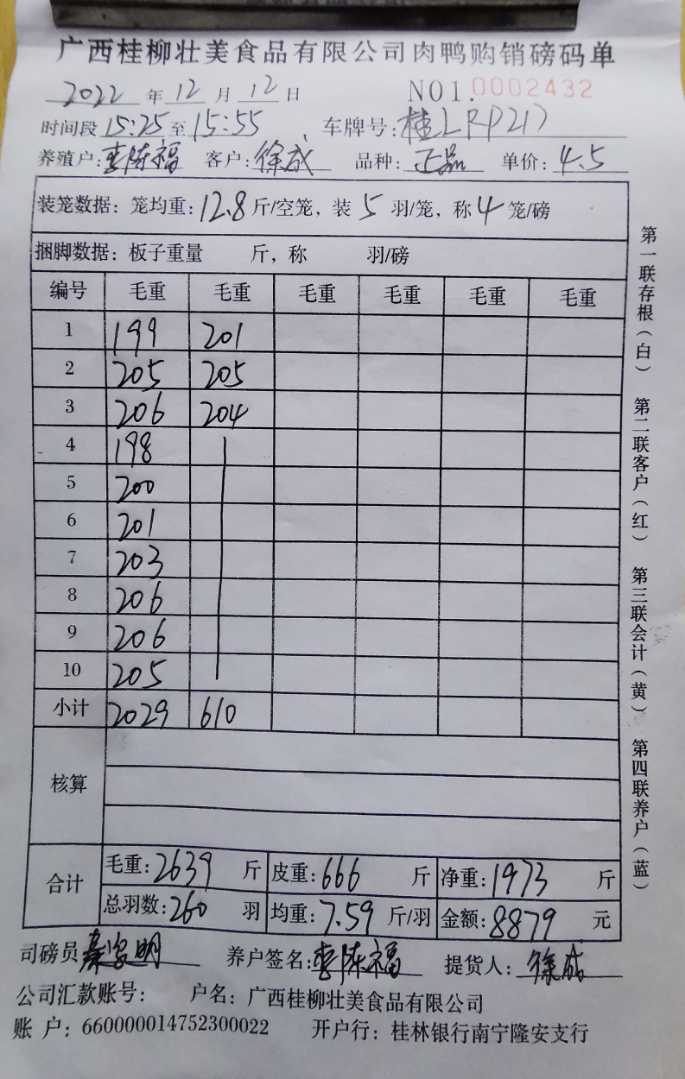 广西桂柳壮美食品有限公司肉鸭购销磅码单
2022 年 12 月 12 日 NO1.0002432
时间段 15:25 至 15:55 车牌号: 桂LRP217
养殖户: 李陈福 客户: 徐成 品种: 正品 单价: 4.5
装笼数据: 笼均重: 12.8 斤/空笼, 装 5 羽/笼, 称 4 笼/磅
捆脚数据: 板子重量 斤, 称 羽/磅
编号 毛重 毛重 毛重 毛重 毛重 毛重
1 199 201
2 205 205
3 206 204
4 198
5 200
6 201
7 203
8 206
9 206
10 205
小计 2029 610
核算
合计 毛重: 2639 斤 皮重: 666 斤 净重: 1973 斤
总羽数: 260 羽 均重: 7.59 斤/羽 金额: 8879 元
司磅员: 明 养户签名: 李陈福 提货人: 徐成
公司汇款账号: 户名: 广西桂柳壮美食品有限公司
账 户: 660000014752300022 开户行: 桂林银行南宁隆安支行
第一联存根(白) 第二联客户(红) 第三联会计(黄) 第四联养户(蓝)